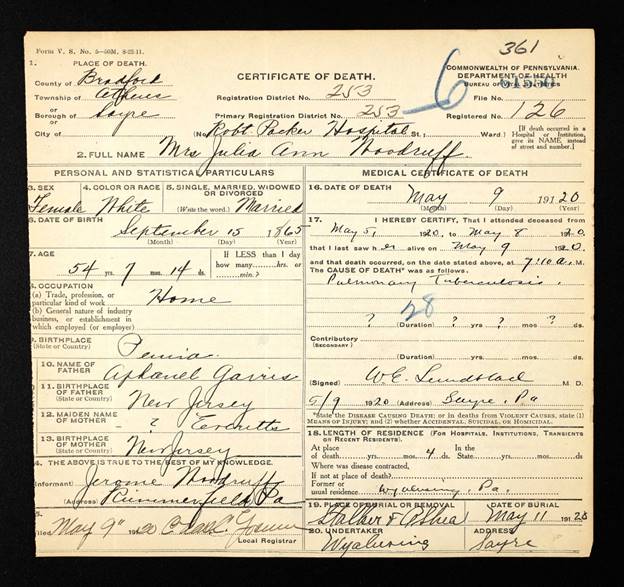 361
Form V. S. No. 5—50M, 8-25-11.
1. PLACE OF DEATH.
County of Bradford
Township of Athens
or
Borough of Sayre
or
City of
CERTIFICATE OF DEATH.
Registration District No. 253
Primary Registration District No. 253
6
COMMONWEALTH OF PENNSYLVANIA.
DEPARTMENT OF HEALTH
File No.
Registered No. 126
(No. Robt Packer Hospital St.; Ward)
[If death occurred in a Hospital or Institution, give its NAME instead of street and number.]
2. FULL NAME Mrs Julia Ann Woodruff.
PERSONAL AND STATISTICAL PARTICULARS
3. SEX Female
4. COLOR OR RACE White
5. SINGLE, MARRIED, WIDOWED OR DIVORCED (Write the word.) Married
6. DATE OF BIRTH September 15 1865
(Month) (Day) (Year)
7. AGE 54 yrs. 7 mos. 14 ds.
If LESS than 1 day how many....hrs. or ....min.?
8. OCCUPATION
(a) Trade, profession, or particular kind of work Home
(b) General nature of industry business, or establishment in which employed (or employer)
9. BIRTHPLACE (State or Country) Penna.
10. NAME OF FATHER Garris
11. BIRTHPLACE OF FATHER (State or Country) New Jersey
12. MAIDEN NAME OF MOTHER - ? Everitts
13. BIRTHPLACE OF MOTHER (State or Country) New Jersey
14. THE ABOVE IS TRUE TO THE BEST OF MY KNOWLEDGE.
(Informant) Jerome Woodruff
(Address) Rummerfield Pa
15. May 9" 1920
Local Registrar
MEDICAL CERTIFICATE OF DEATH
16. DATE OF DEATH May 9 19120
(Month) (Day) (Year)
17. I HEREBY CERTIFY, That I attended deceased from
May 5, 1920, to May 8 1920.
that I last saw her alive on May 9 1920.
and that death occurred, on the date stated above, at 7:10 a. M.
The CAUSE OF DEATH* was as follows:
Pulmonary Tuberculosis.
28
? (Duration) ? yrs. ? mos. ? ds.
Contributory (SECONDARY)
(Duration) yrs. mos. ds.
(Signed) W.E. Lundblad M. D.
5/9 1920 (Address) Sayre, Pa
*State the DISEASE CAUSING DEATH; or in deaths from VIOLENT CAUSES, state (1) MEANS OF INJURY; and (2) whether ACCIDENTAL, SUICIDAL, or HOMICIDAL.
18. LENGTH OF RESIDENCE (FOR HOSPITALS, INSTITUTIONS, TRANSIENTS OR RECENT RESIDENTS).
At place of death....yrs....mos. 4 ds. In the State....yrs....mos....ds.
Where was disease contracted, if not at place of death?
Former or usual residence Wyalusing, Pa.
19. PLACE OF BURIAL OR REMOVAL
DATE OF BURIAL May 11 19120
20. UNDERTAKER
Wyalusing
ADDRESS
Sayre